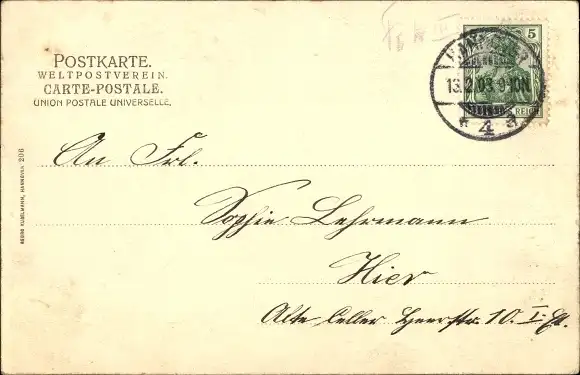 POSTKARTE.
WELTPOSTVEREIN.
CARTE-POSTALE.
UNION POSTALE UNIVERSELLE.
5
REICH
HANNOVER
13.2.03 9-10N
* 4 a
An Frl.
Sophie Lehrmann
Hier
Alte Celler Heerstr. 10. I. Et.
HANNOVER 206